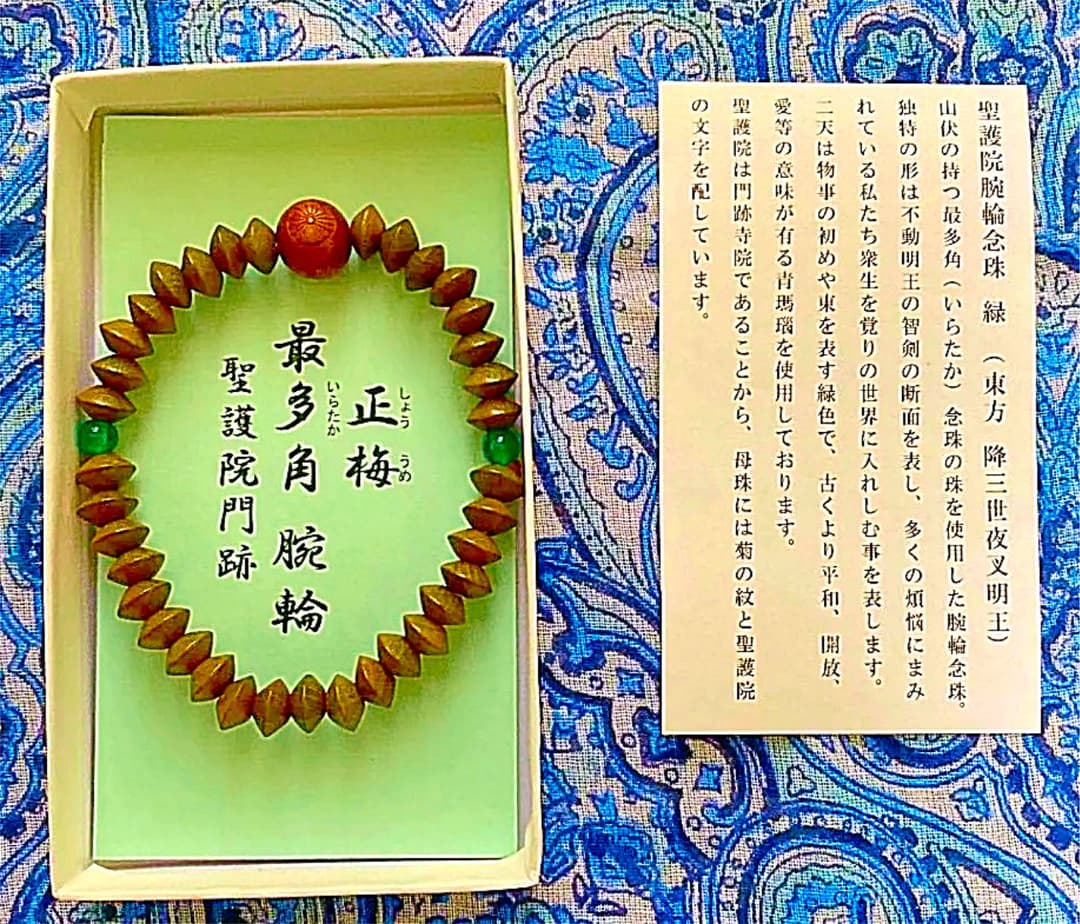 正梅
しょううめ
最多角 腕輪
いらたか
聖護院門跡
聖護院腕輪念珠 緑 (東方 降三世夜叉明王)
山伏の持つ最多角(いらたか)念珠の珠を使用した腕輪念珠。
独特の形は不動明王の智剣の断面を表し、多くの煩悩にまみ
れている私たち衆生を覚りの世界に入れしむ事を表します。
二天は物事の初めや東を表す緑色で、古くより平和、開放、
愛等の意味が有る青瑪瑙を使用しております。
聖護院は門跡寺院であることから、母珠には菊の紋と聖護院
の文字を配しています。